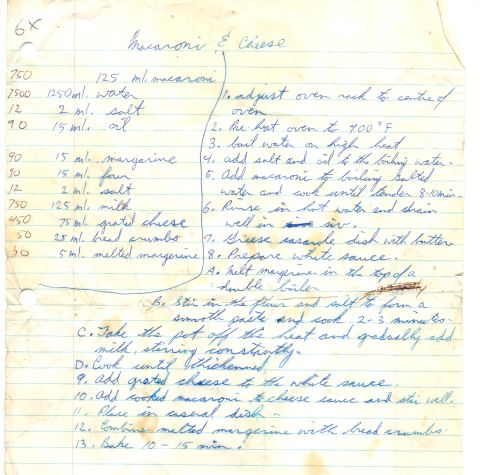 6X
Macaroni & Cheese
750 125 ml. macaroni
7500 1250 ml. water
12 2 ml. salt
90 15 ml. oil
90 15 ml. margarine
90 15 ml. flour
12 2 ml. salt
750 125 ml. milk
450 75 ml. grated cheese
50 25 ml. bread crumbs
30 5 ml. melted margerine
1. adjust oven rack to centre of
oven
2. Pre-heat oven to 400°F
3. boil water on high heat
4. add salt and oil to the boiling water.
5. Add macaronie to boiling salted
water and cook until tender 8-10 min.
6. Rinse in hot water and drain
well in siv.
7. Grease casarole dish with butter
8. Prepare white sauce.
A. melt margerine in the top of a
double boiler
B. Stir in the flour and salt to form a
smooth paste and cook 2-3 minutes.
C. Take the pot off the heat and gradually add
milk, stirring constantly.
D. Cook until thickened.
9. add grated cheese to the white sauce.
10. add cooked macaroni to cheese sauce and stir well.
11. Place in caseral dish.
12. Combine melted margerine with bread crumbs.
13. Bake 10-15 min.